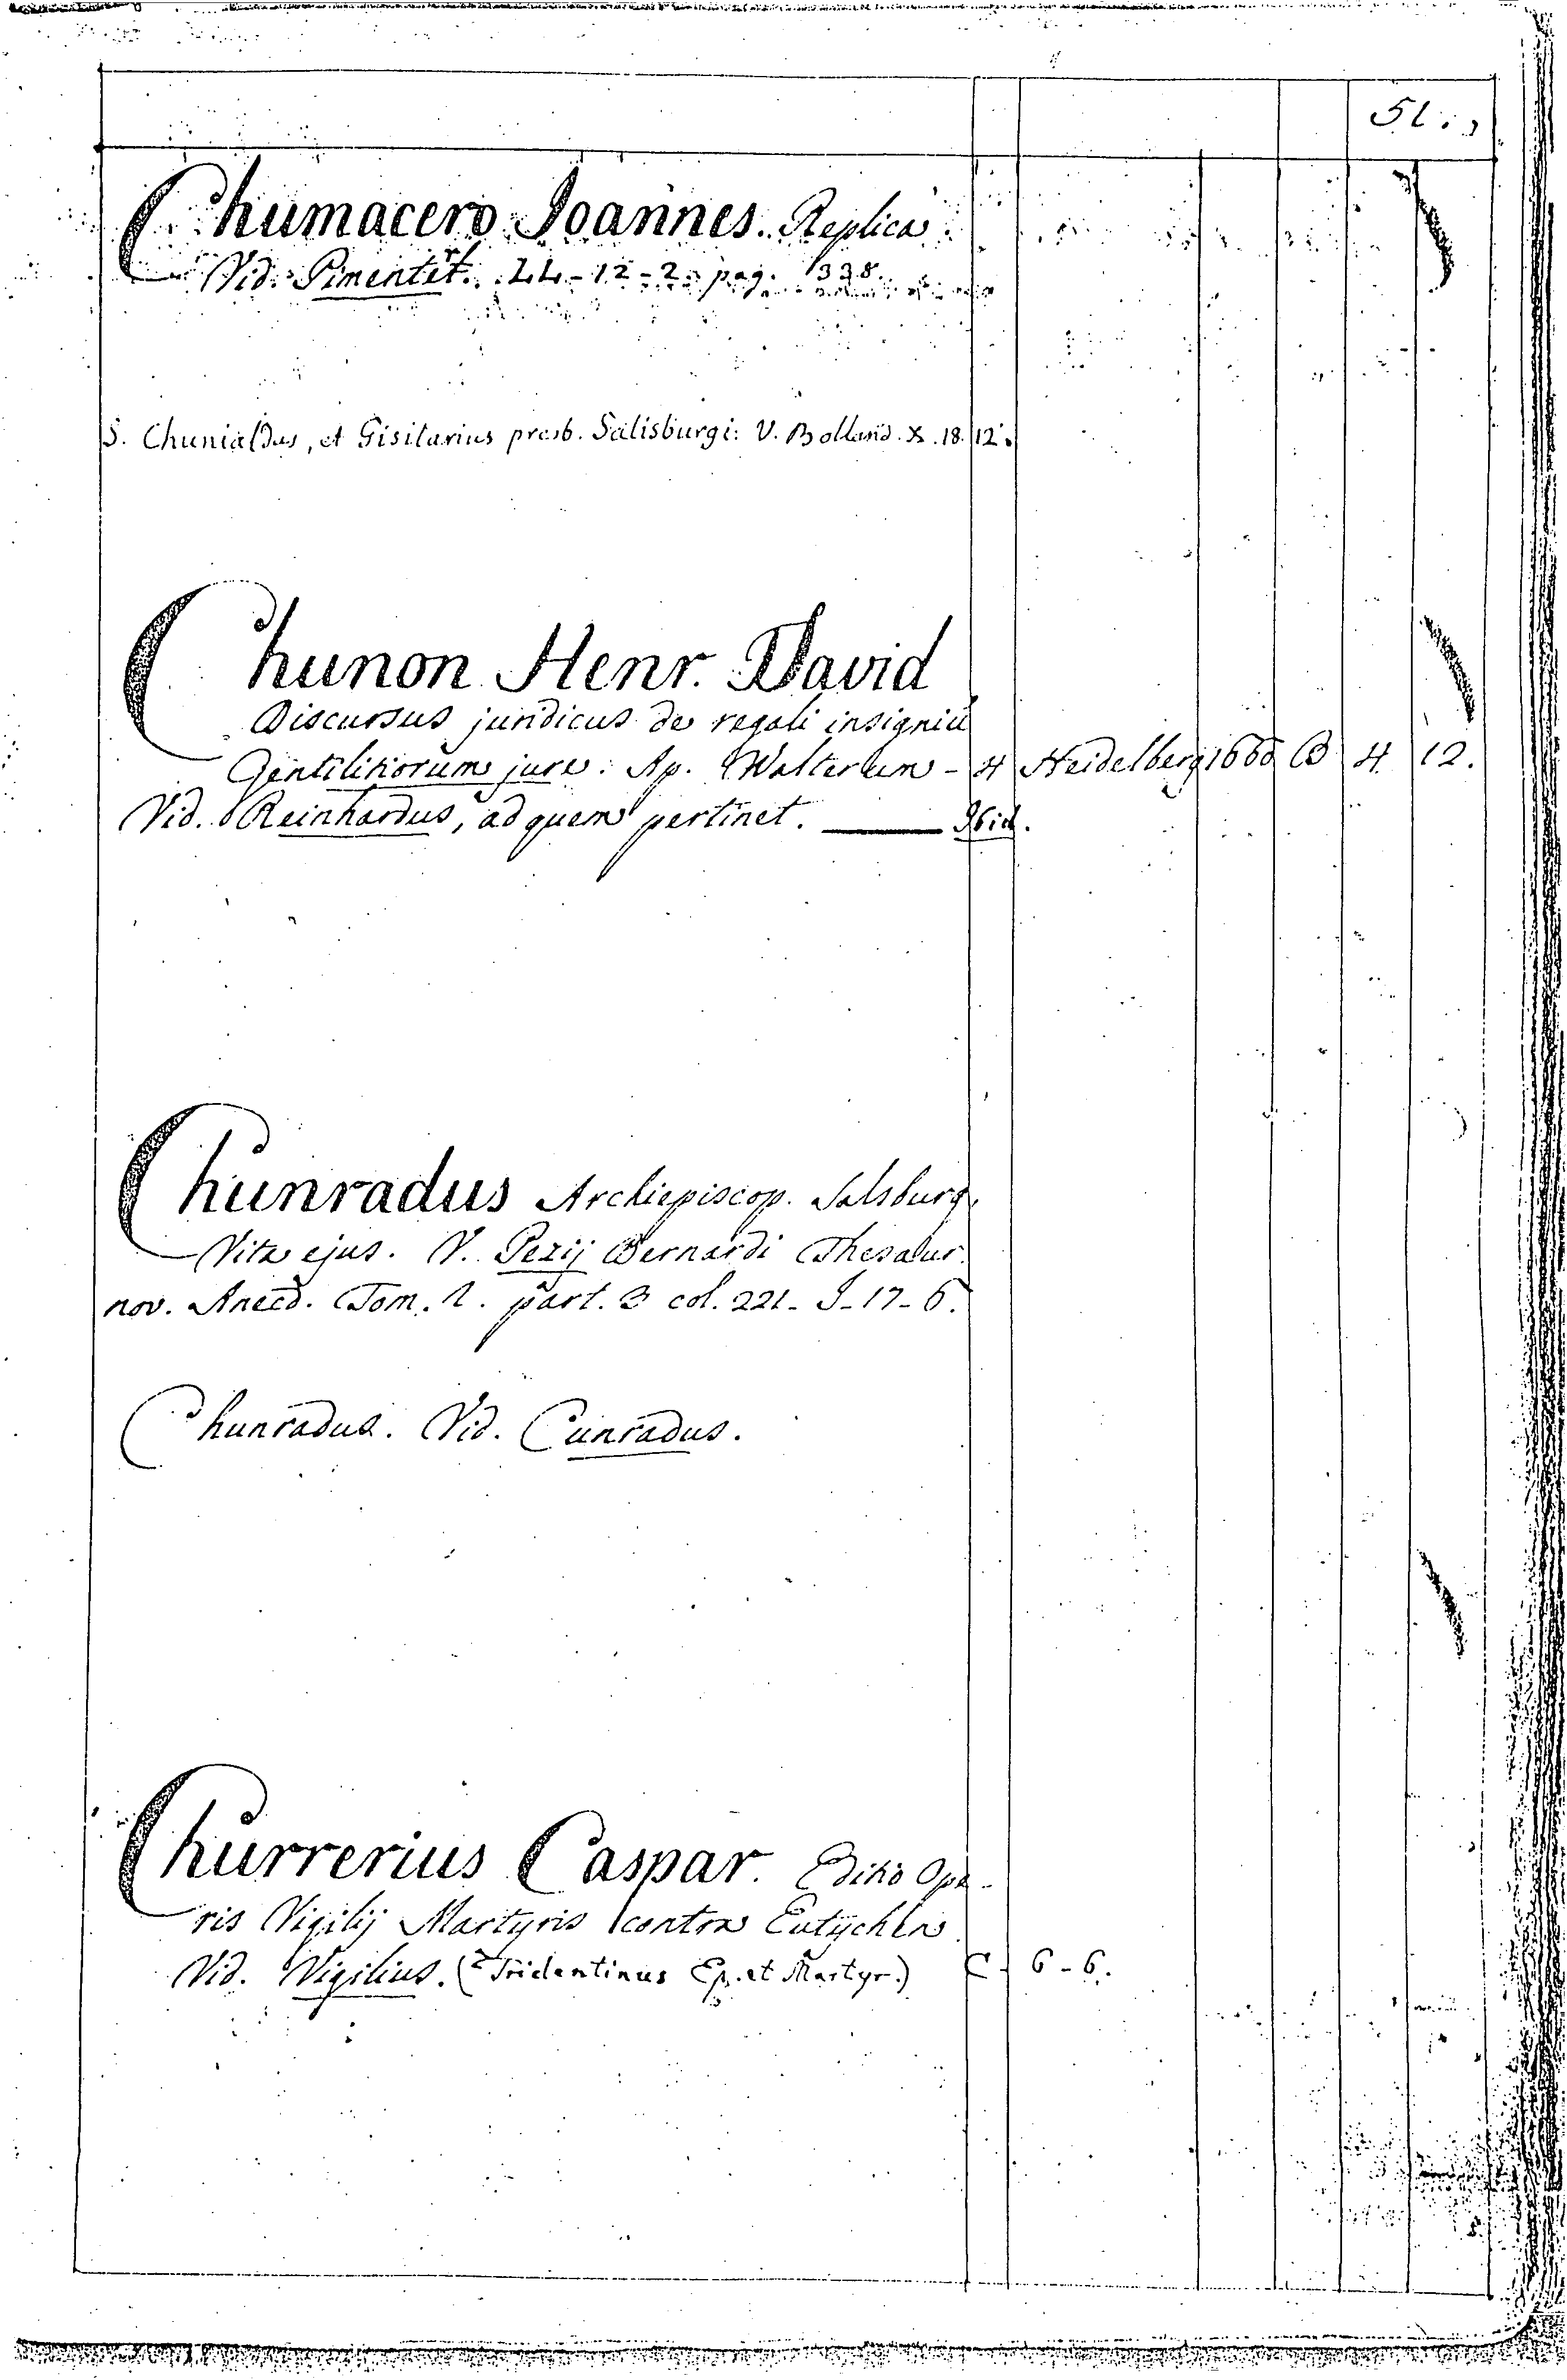 51.
Chumacero Joannes. Replica
Vid. Pimentel. LL-12-2. pag. 338.
S. Chunialdus, et Gisilarius presb. Salisburgi: V. Bolland. X. 18. 12.
Chunon Henr. David
Discursus juridicus de regali insigniū
Gentilitiorum jure. Ap. Walterum - 4 Heidelberg 1668 B 4 12.
Vid. Reinhardus, ad quem pertinet. Ibid.
Chunradus Archiepiscop. Salsburg.
Vita ejus. V. Pezij Bernardi Thesaur.
nov. Anecd. Tom. 2. part. 3 col. 221- J-17-6.
Chunradus. Vid. Cunradus.
Churrerius Caspar. Editio Ope-
ris Vigilij Martyris contra Eutychen
Vid. Vigilius. (Tridentinus Ep. et Martyr.) C - 6-6.